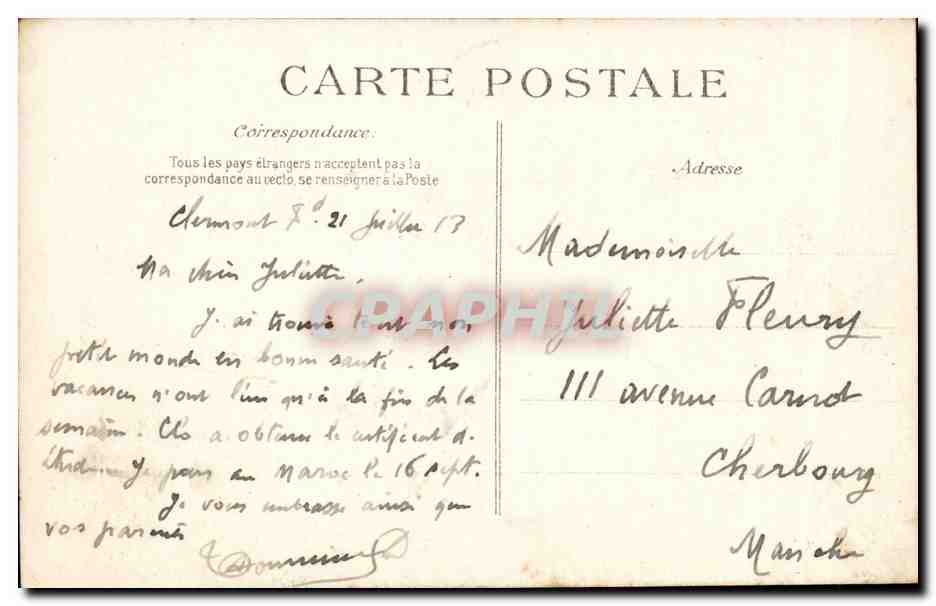 CARTE POSTALE
Correspondance:
Tous les pays étrangers n'acceptent pas la
correspondance au recto, se renseigner à la Poste
Adresse
Clermont Fd 21 Juillet 13
Ma chère Juliette,
J'ai trouvé tout mon
petit monde en bonne santé. Les
vacances n'ont lieu qu'à la fin de la
semaine. Clo a obtenu le certificat d'
études. Je pars au Maroc le 16 sept.
Je vous embrasse ainsi que
vos parents
Mademoiselle
Juliette Fleury
111 avenue Carnot
Cherbourg
Manche
CPAPHIL